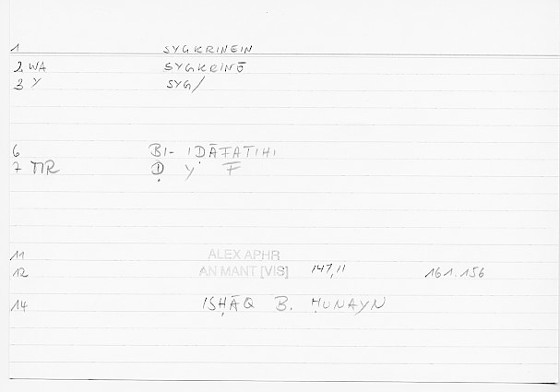 1 SYGKRINEIN
2 WA SYGKRINŌ
3 Y SYG/
6 BI- IḌĀFATIHI
7 MR Ḍ Y F
11 ALEX APHR
12 AN MANT [VIS] 147,11 161.156
14 ISḤĀQ B. ḤUNAYN